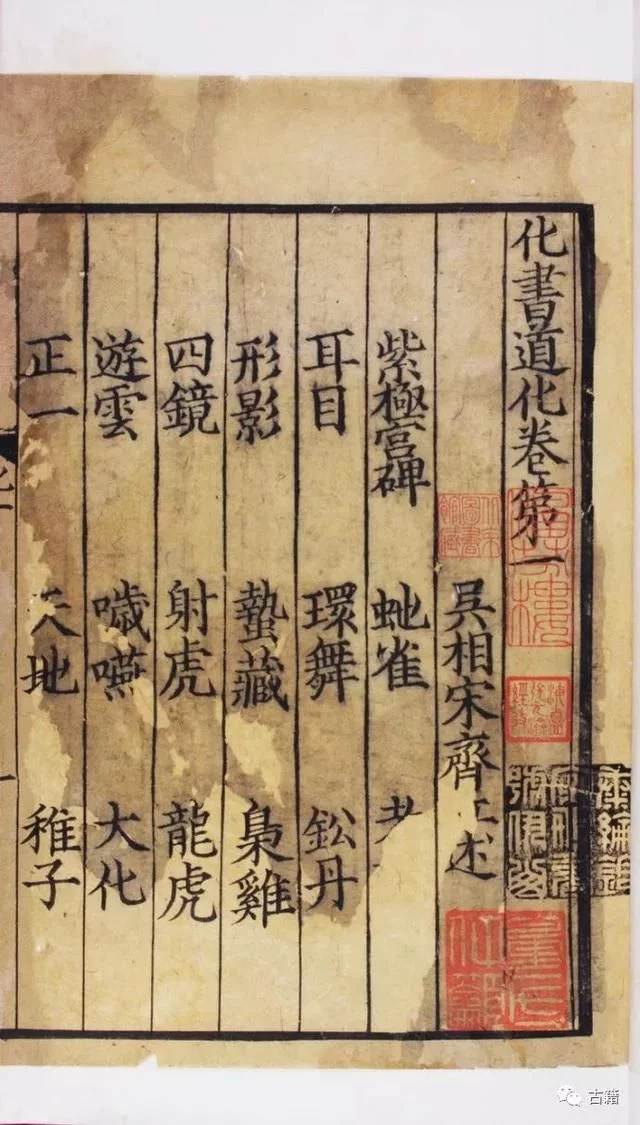 化書道化卷第一
吳相宋齊丘述
紫極宮碑 虵雀
耳目 環舞 鈆丹
形影 蟄藏 梟雞
四鏡 射虎 龍虎
遊雲 噦㗾 大化
正一 天地 稚子
古籍